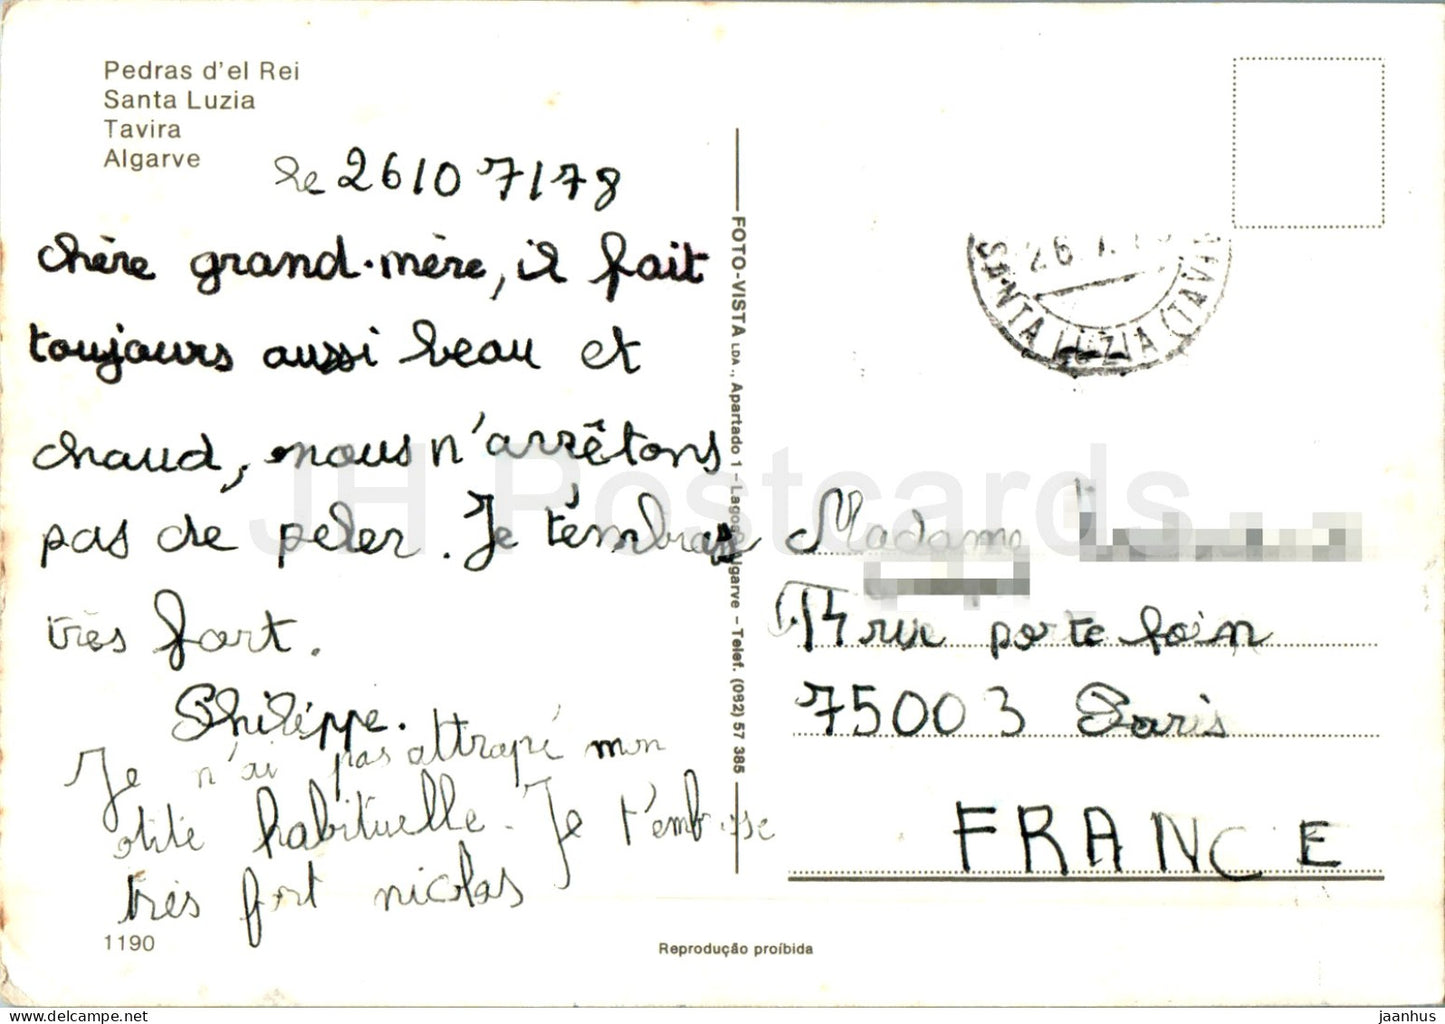 Pedras d'el Rei
Santa Luzia
Tavira
Algarve
le 26/07/78
chère grand-mère, il fait
toujours aussi beau et
chaud, nous n'arrêtons
pas de peler. Je t'embrasse
très fort.
Philippe.
Je n'ai pas attrapé mon
otite habituelle. Je t'embrasse
très fort nicolas
1190
FOTO-VISTA LDA., Apartado 1 - Lagos - Algarve - Telef. (082) 57 385
Reprodução proíbida
26.7.
SANTA LUZIA (TAVI
Madame
14 rue porte foin
75003 Paris
FRANCE
JH Postcards
jaanhus